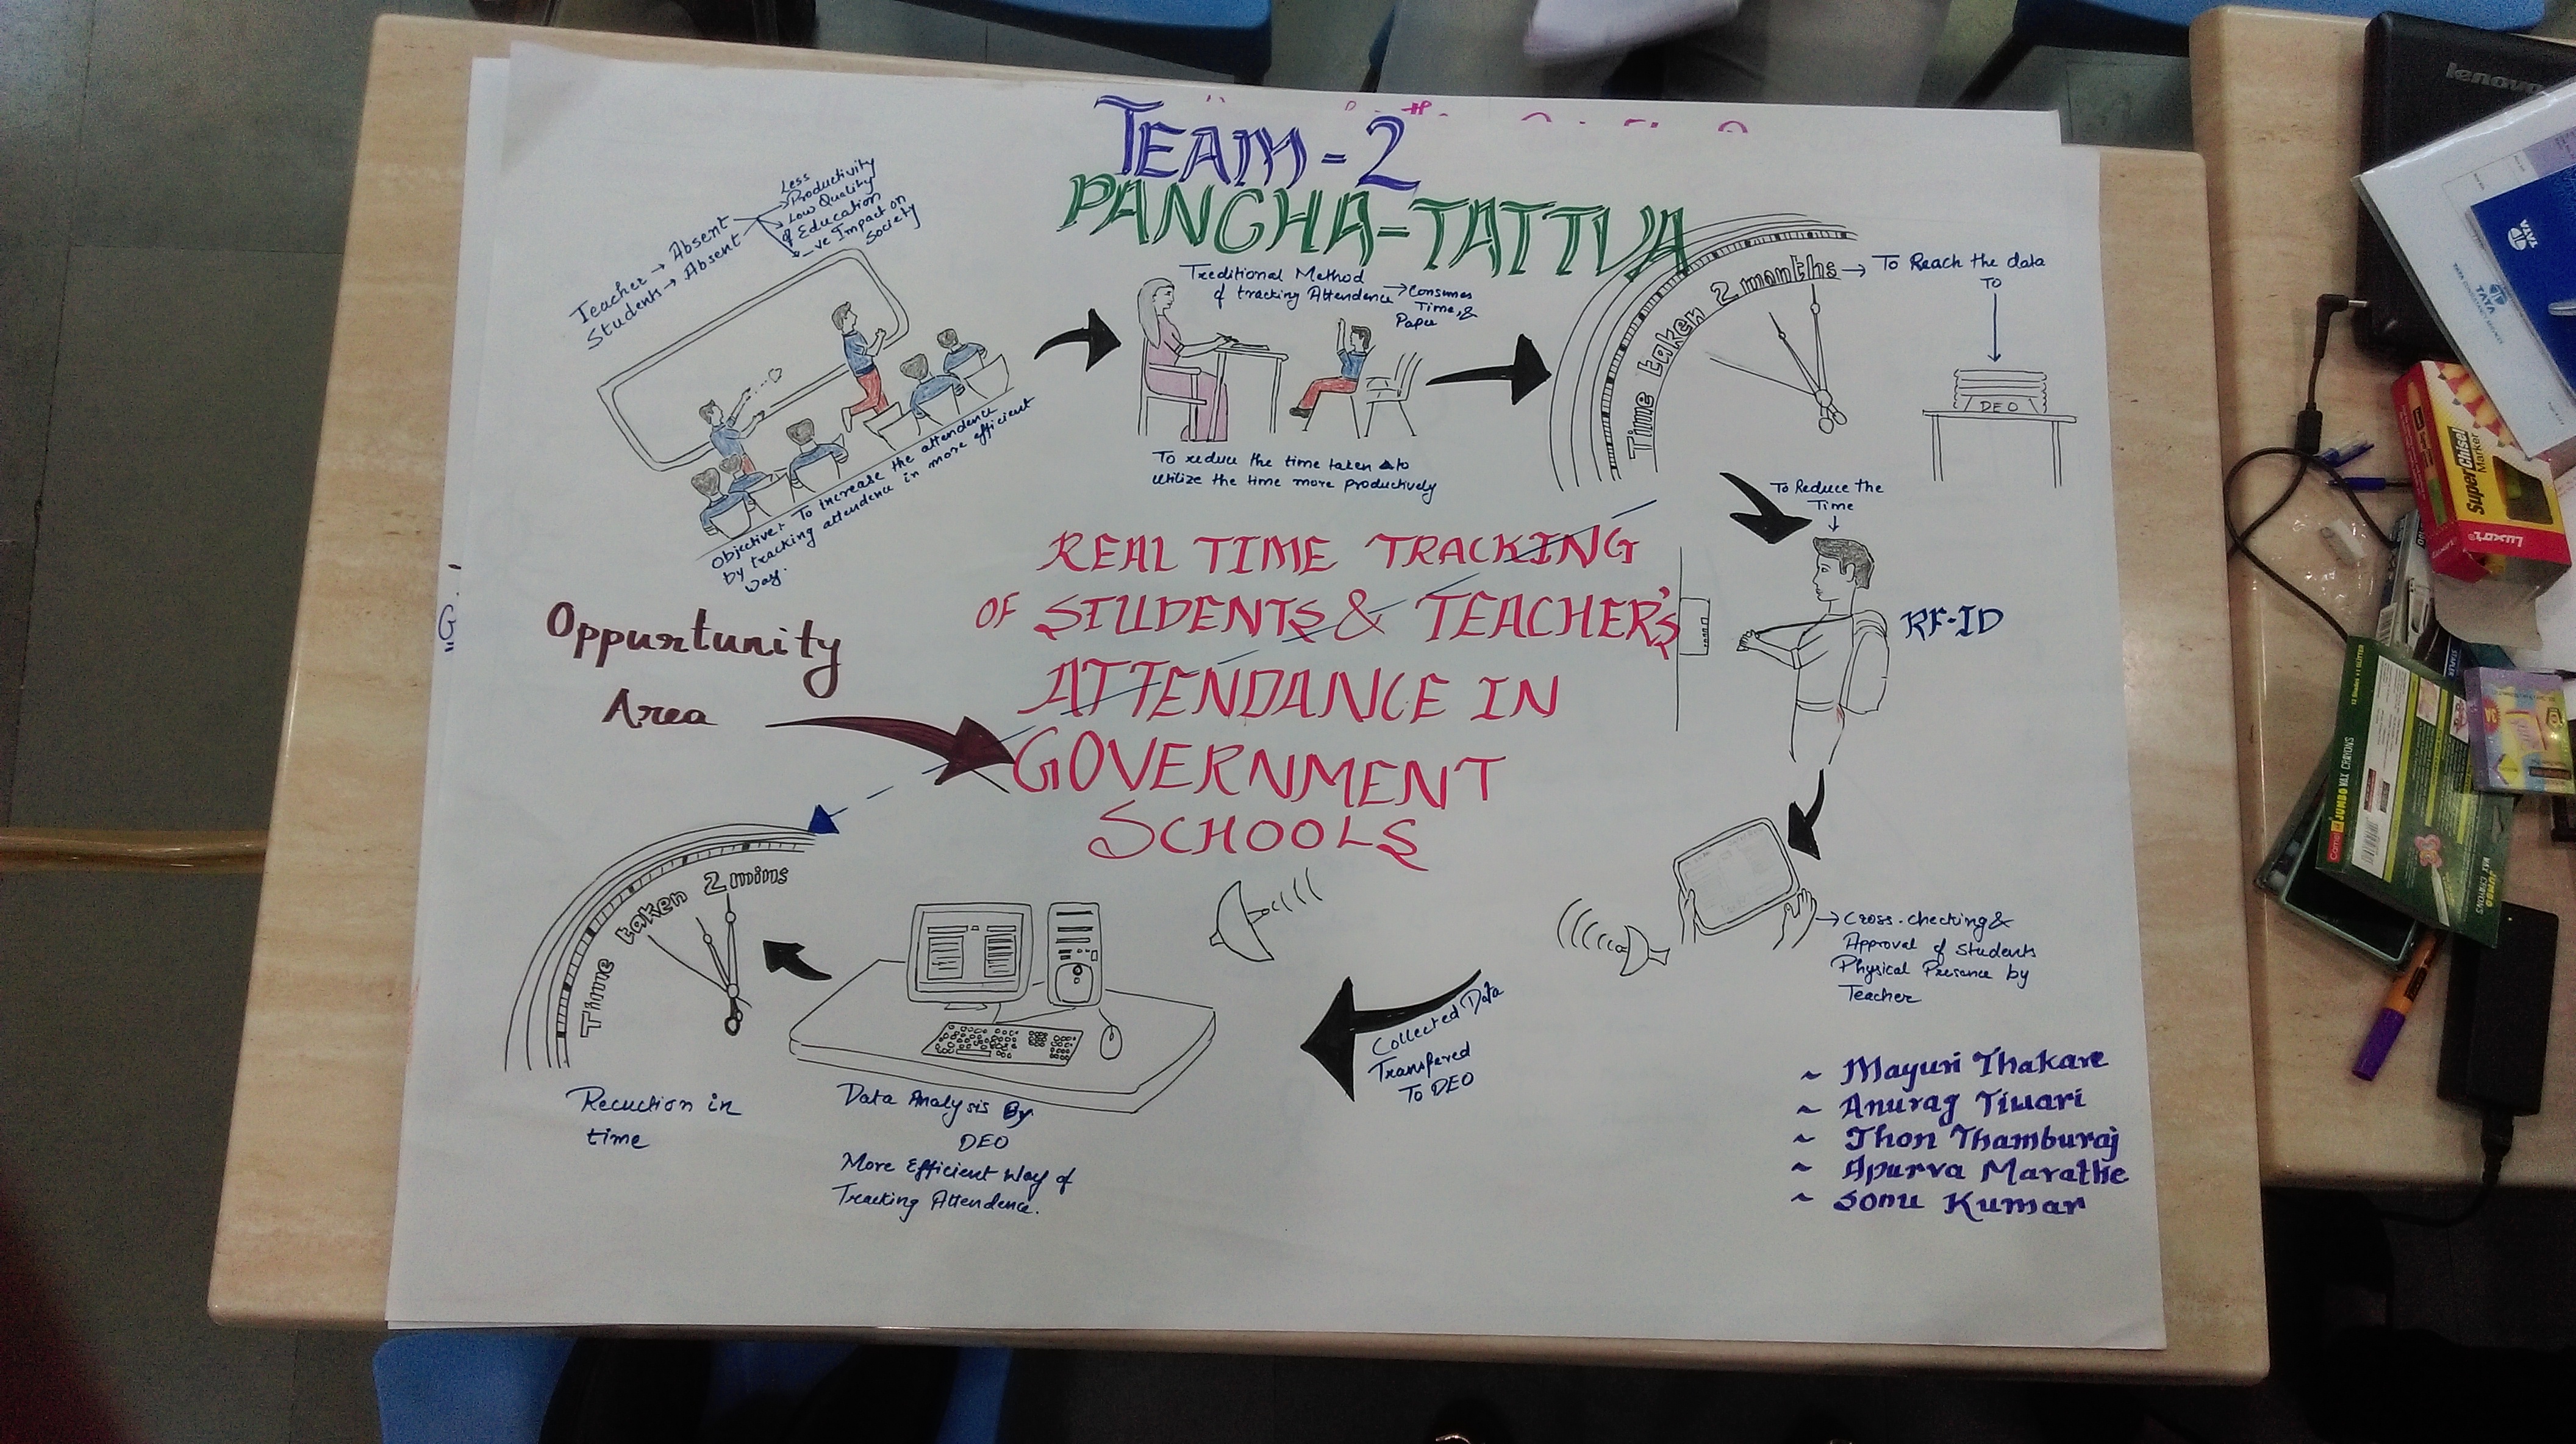 TEAM-2
PANCHA-TATTVA
Teacher → Absent
Students → Absent
Less
Productivity
Low Quality
of Education
-ve Impact on
Society
Objective:- To increase the attendence
by tracking attendence in more efficient
way.
Treditional Method
of tracking Attendence → Consumes
Time, &
Paper
To reduce the time taken & to
utilize the time more productively
Time taken 2 months → To Reach the data
TO
DEO
To Reduce the
Time
RF-ID
REAL TIME TRACKING
OF STUDENTS & TEACHER'S
ATTENDANCE IN
GOVERNMENT
SCHOOLS
Oppurtunity
Area
→ Cross-checking &
Approval of Students
Physical Presence by
Teacher
Collected Data
Transfered
To DEO
Data Analysis By
DEO
More Efficient Way of
Tracking Attendence.
Time taken 2 mins
Recuction in
time
~ Mayuri Thakare
~ Anurag Tiwari
~ Jhon Thamburaj
~ Apurva Marathe
~ Sonu Kumar
lenovo
TATA
TATA
SuperChisel
Marker
Luxor
Camel
JUMBO WAX CRAYONS
JUMBO
WAX CRAYONS
STAPLER